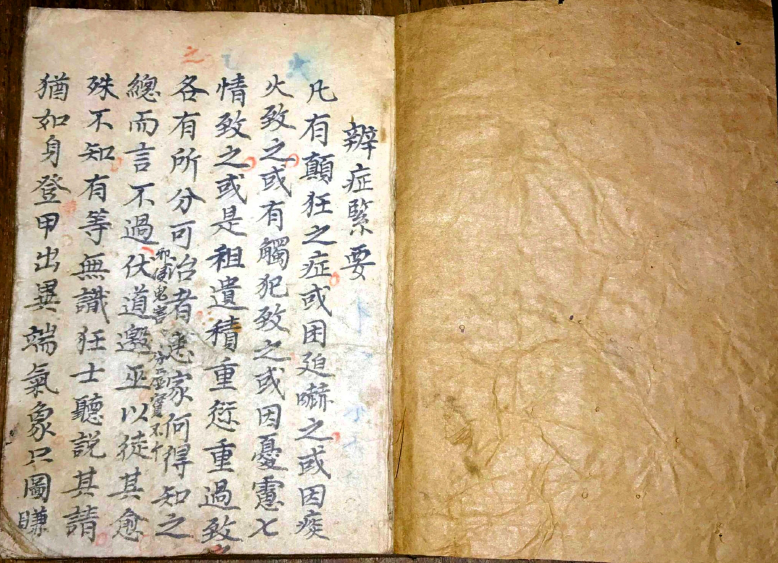 辨症緊要
凡有顛狂之症或因廹嚇之或因痰
火致之或有觸犯致之或因憂慮七
情致之或是祖遺積重愆重過致
各有所分可治者患家何得知之
總而言不過伏道邀巫以徒其愈
殊不知有等無識狂士聽說其請
猶如身登甲出異端氣象只圖賺
之